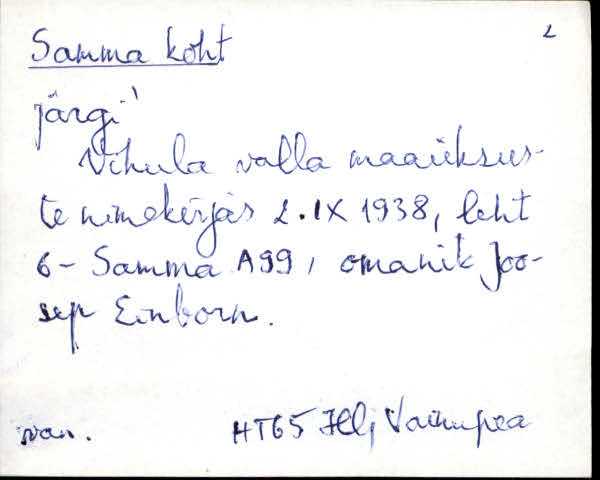 2
Samma koht
järgi'
Vihula valla maaüksus-
te nimekirjas 2.IX 1938, leht
6 - Samma A99, omanik Joo-
sep Einborn.
van. HT65 Hlj Vainupea